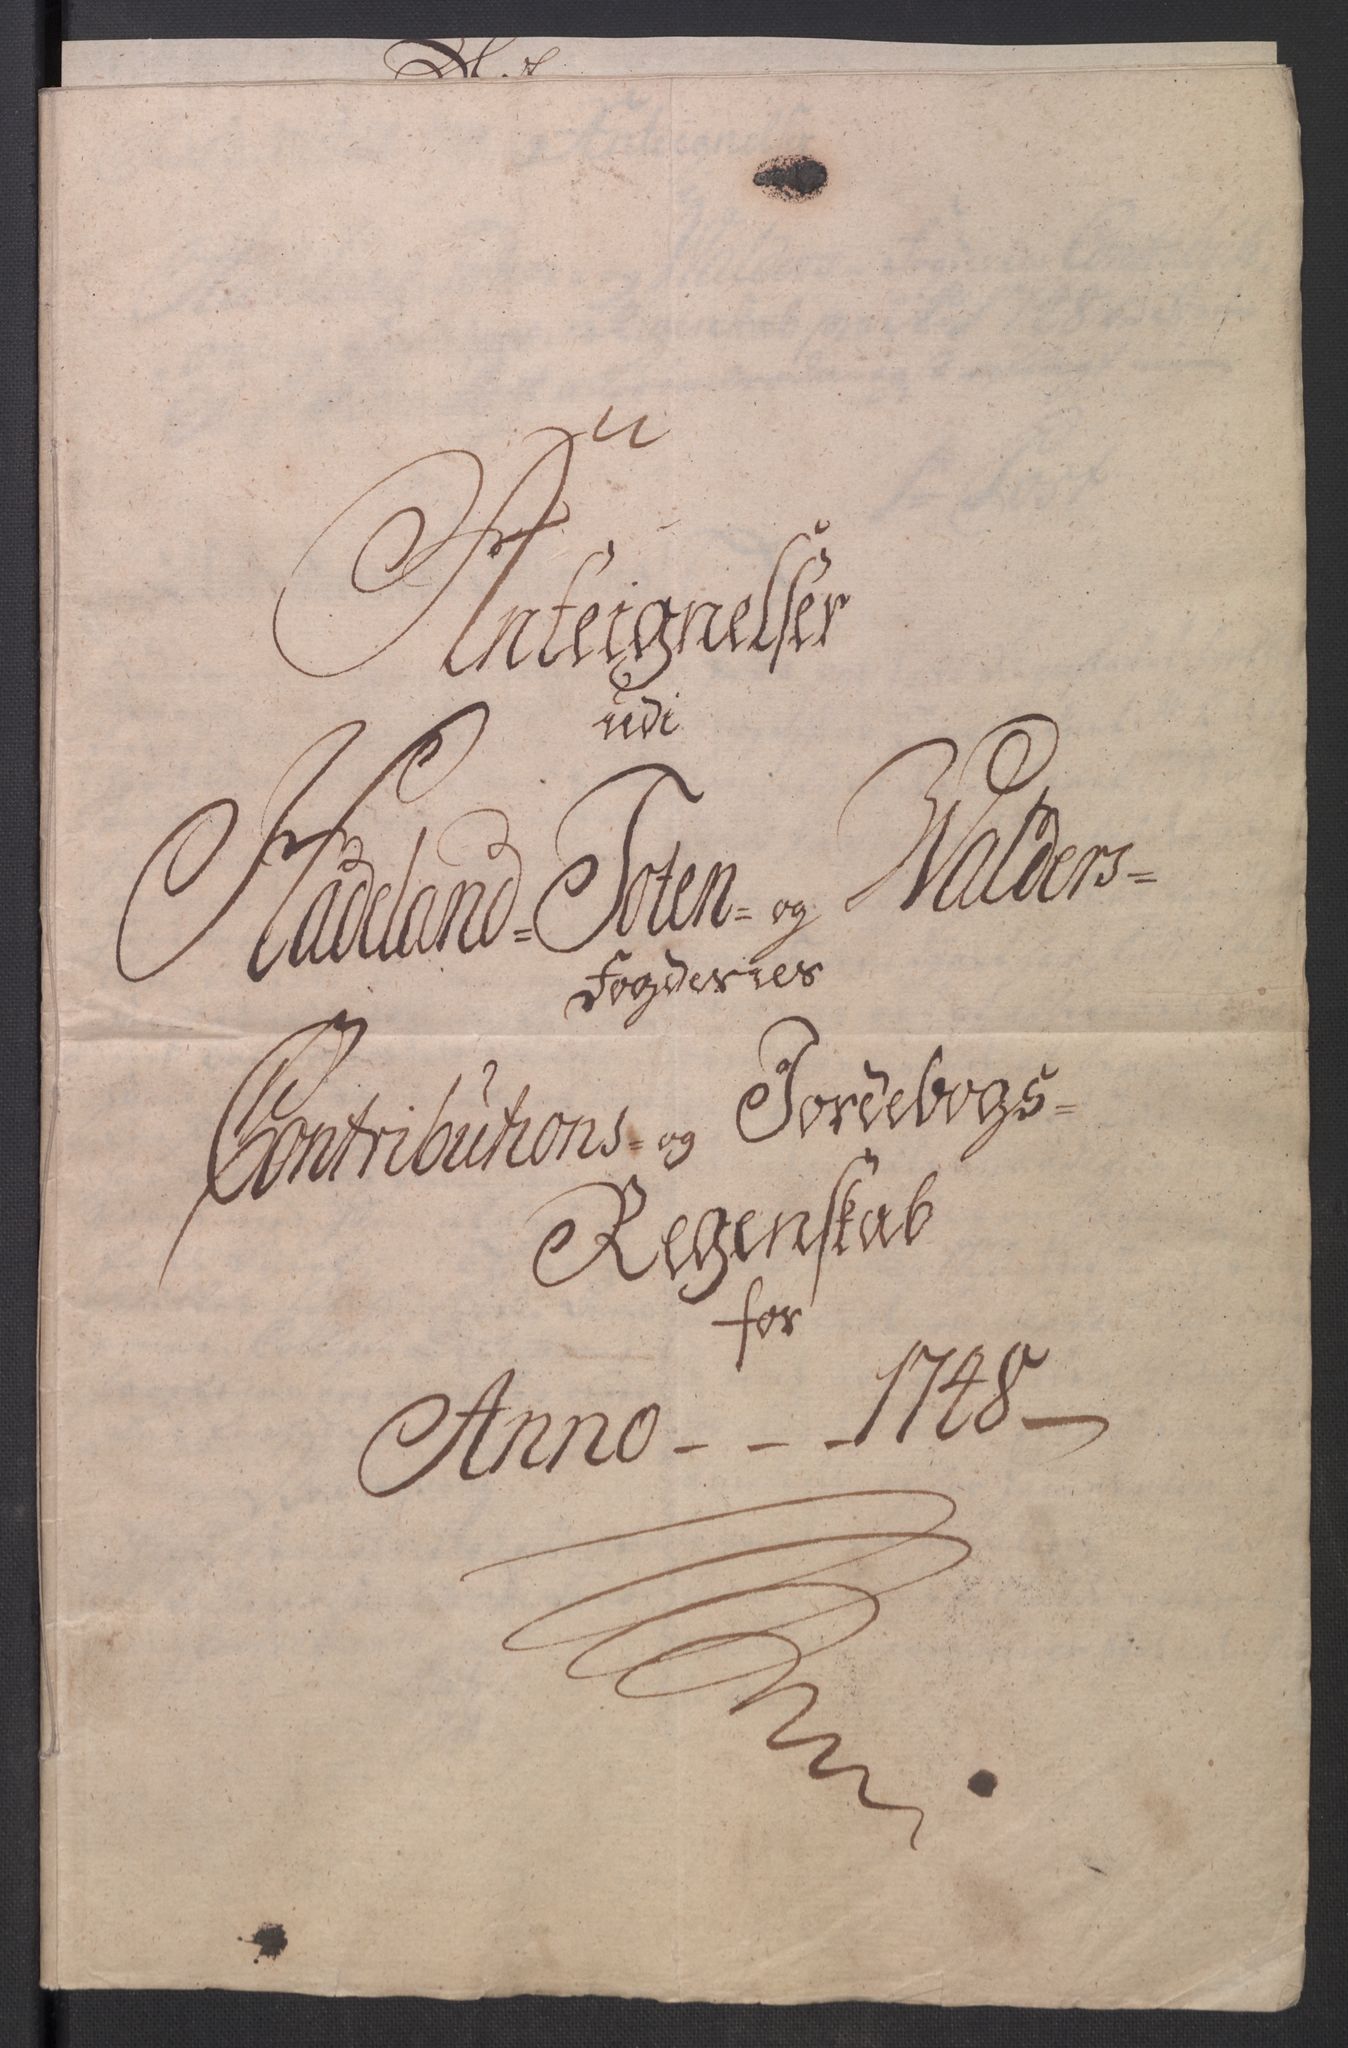 Anteignelser
udi
Hadeland= Toten= og Walders=
Fogderies
Contributions= og Jordebogs=
Regenskab
for
Anno - - - 1748 -